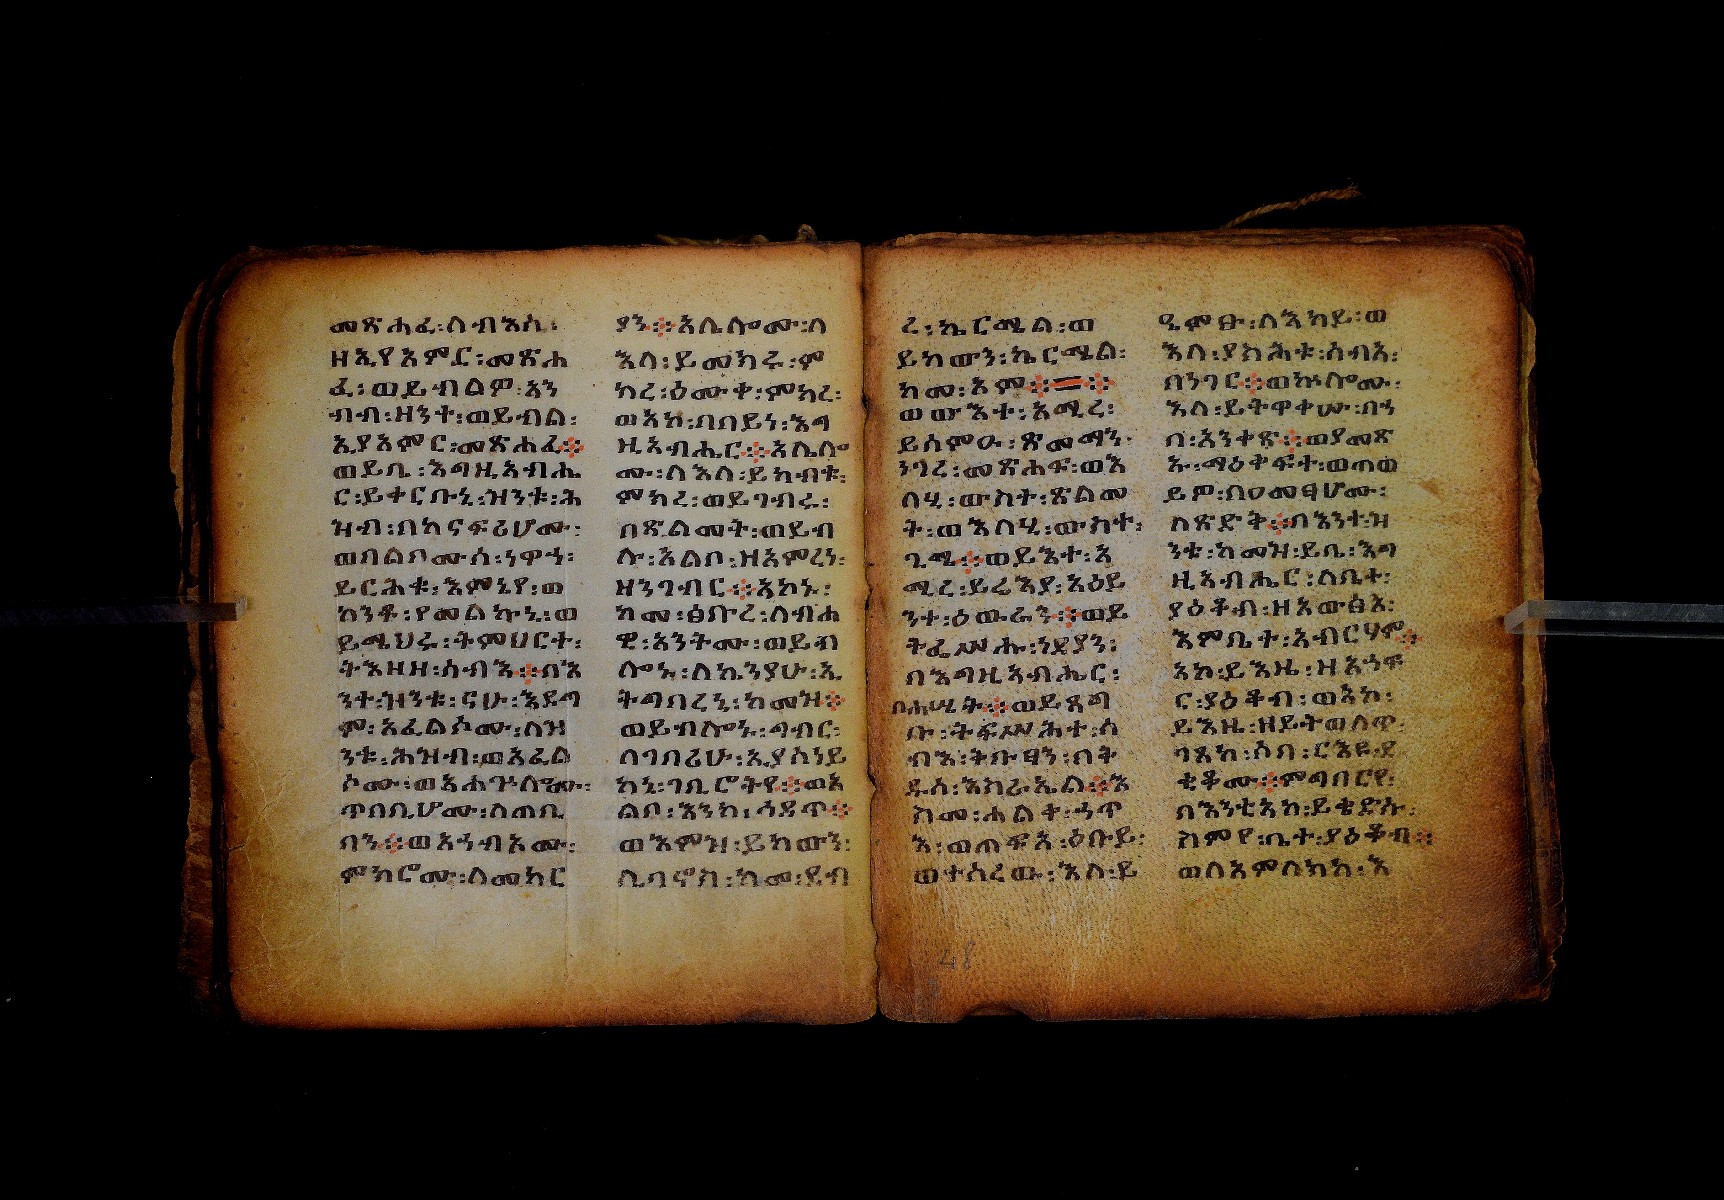 መጽሐፈ፡ለብእሲ፡
ዘኢየአምር፡መጽሐ
ፈ፡ወይብልዎ፡አን
ብብ፡ዘንተ፡ወይብል፡
ኢያአምር፡መጽሐፈ፨
ወይቤ፡እግዚአብሔ
ር፡ይቀርቡኒ፡ዝንቱ፡ሕ
ዝብ፡በከናፍሪሆሙ፡
ወበልቦሙሰ፡ነዋኅ፡
ይርሕቁ፡እምኔየ፡ወ
ከንቶ፡የመልኩኒ፡ወ
ይሜህሩ፡ትምህርተ፡
ትእዛዘ፡ሰብእ፨በእ
ንተ፡ዝንቱ፡ናሁ፡እደግ
ም፡አፈልሶሙ፡ለዝ
ንቱ፡ሕዝብ፡ወአፈል
ሶሙ፡ወአሐጕሎሙ፡
ጥበቢሆሙ፡ለጠቢ
ባን፨ወአኀብአሙ፡
ምክሮሙ፡ለመከር
ያን፨አሌሎሙ፡ለ
እለ፡ይመክሩ፡ም
ክረ፡ዕሙቀ፡ምክረ፡
ወአኮ፡በበይነ፡እግ
ዚአብሔር፨አሌሎ
ሙ፡ለእለ፡ይኀብቱ፡
ምክረ፡ወይገብሩ፡
በጽልመት፡ወይብ
ሉ፡አልቦ፡ዘአምረነ፡
ዘንገብር፨አኮኑ፡
ከመ፡ፅቡረ፡ለብሐ
ዊ፡አንትሙ፡ወይብ
ሎኑ፡ለኬንያሁ፡ኢ
ትግበረኒ፡ከመዝ፨
ወይብሎኑ፡ግብር፡
ለገባሪሁ፡ኢያሰነይ
ከኒ፡ገቢሮትየ፨ወአ
ልቦ፡እንከ፡ኅዳጥ፨
ወእምዝ፡ይከውን፡
ሊባኖስ፡ከመ፡ደብ
ረ፡ኬርሜል፡ወ
ይከውን፡ኬርሜል፡
ከመ፡አም፨፨
ወውእተ፡አሚረ፡
ይሰምዑ፡ጽመማን፡
ነገረ፡መጽሐፍ፡ወእ
ለሂ፡ውስተ፡ጽልመ
ት፡ወእለሂ፡ውስተ፡
ጊሜ፨ወይእተ፡አ
ሚረ፡ይሬእያ፡አዕይ
ንተ፡ዕውራን፨ወይ
ትፌሥሑ፡ነዳያን፡
በእግዚአብሔር፡
በሐሤት፨ወይጸግ
ቡ፡ትፍሥሕተ፡ሰ
ብእ፡ትቡፃን፡በቅ
ዱሰ፡እስራኤል፨እ
ስመ፡ሐልቀ፡ኃጥ
እ፡ወጠፍአ፡ዕቡይ፡
ወተሰረው፡እለ፡ይ
ዔምፁ፡ለእከይ፡ወ
እለ፡ያስሕቱ፡ሰብአ፡
በነገር፨ወኵሎሙ፡
እለ፡ይትዋቀሡ፡በኀ
በ፡አንቀጽ፨ወያመጽ
ኡ፡ማዕቀፍተ፡ወጠወ
ይዎ፡በዐመፃሆሙ፡
ለጽድቅ፨በእንተ፡ዝ
ንቱ፡ከመዝ፡ይቤ፡እግ
ዚአብሔር፡ለቤተ፡
ያዕቆብ፡ዘአውፅአ፡
እምቤተ፡አብርሃም፨
አኮ፡ይእዜ፡ዘአኀፍ
ር፡ያዕቆብ፡ወአኮ፡
ይእዜ፡ዘይትወለጥ፡
ገጹከ፡ሶበ፡ርእዩ፡ደ
ቂቆሙ፨ምግባርየ፡
በእንቲአከ፡ይቄድሱ፡
ስምየ፡ቤተ፡ያዕቆብ፨
ወለአምላከከ፡እ